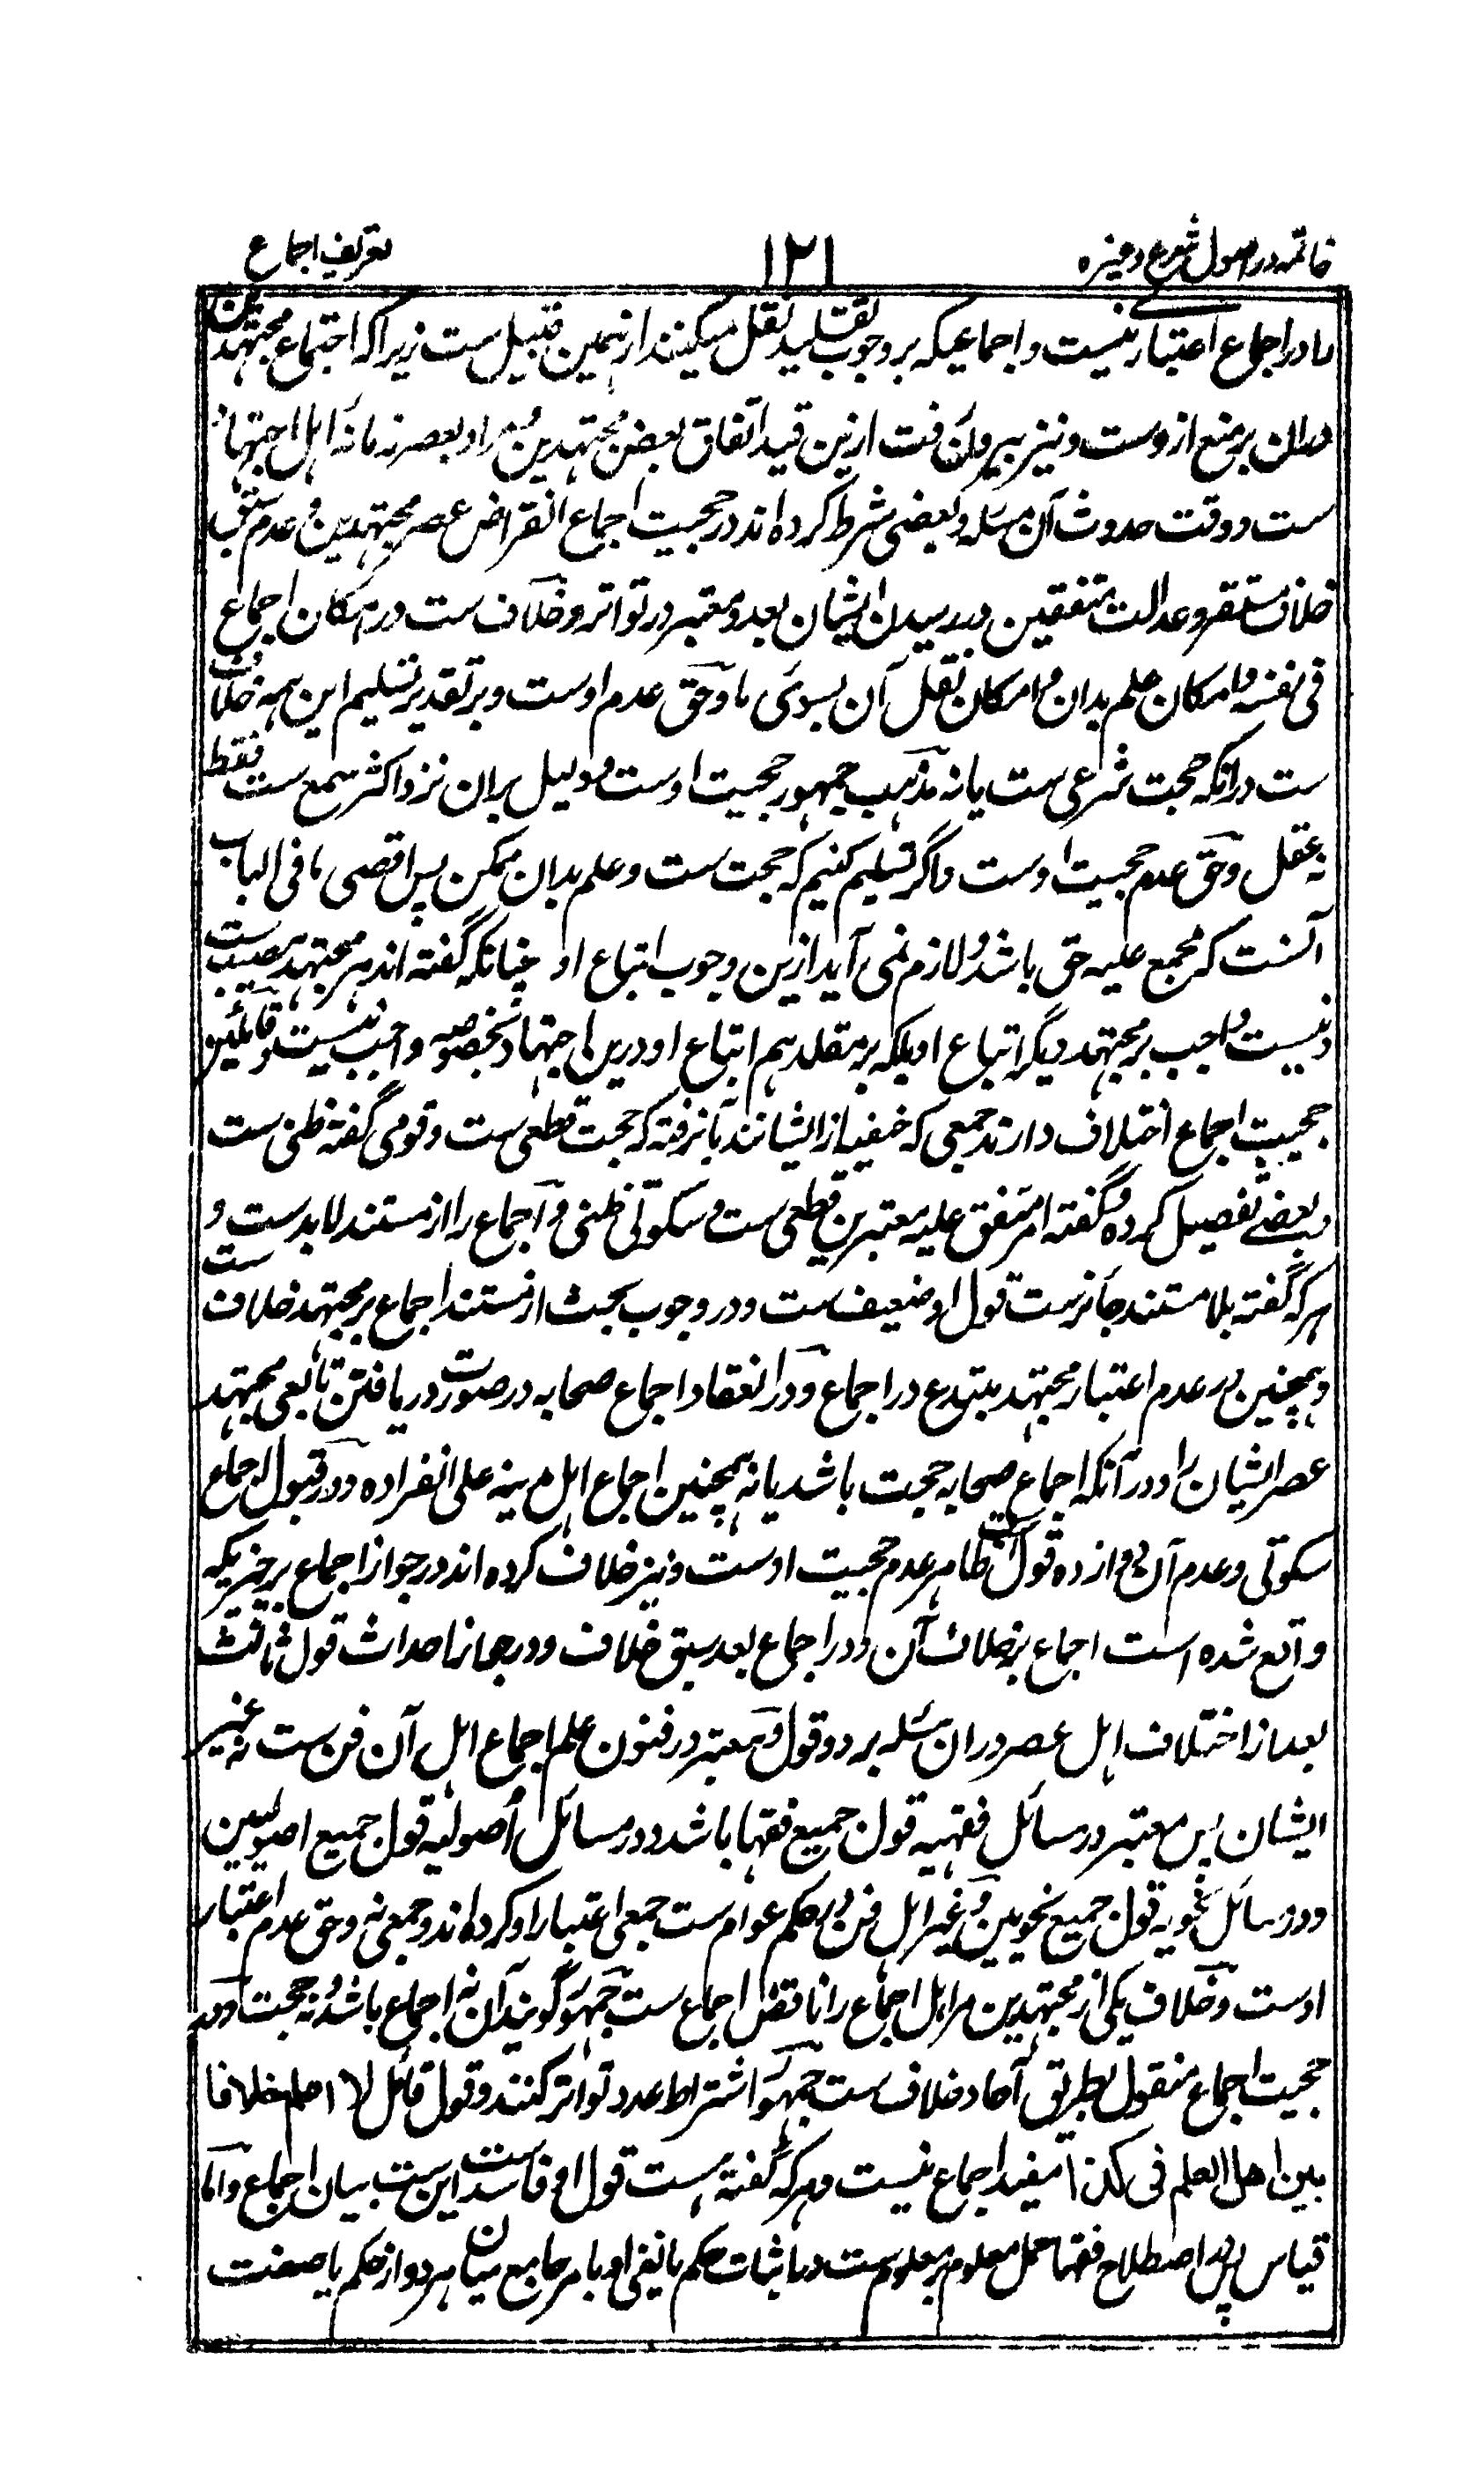 خاتمه در اصول شرع وغیره ۱۲۱ تعریف اجماع
را در اجماع اعتبار نیست و اجماعیکه بر وجوب تقلید نقل میکنند ازینمین قبیل ست زیرا که اجتماع مجتهدین
دران بر منع ازوست و نیز بیرون رفت ازین قید اتفاق بعض مجتهدین و مراد بعصر زمانهٔ اهل اجتهاد
ست و وقت حدوث آن مسئله و بعضی شرط کرده اند در حجیت اجماع انقراض عصر مجتهدین و عدم سبق
خلاف مستقر و عدالت متفقین و رسیدن ایشان بعدد معتبر در تواتر و خلاف ست در امکان اجماع
فی نفسه و امکان علم بدان و امکان نقل آن بسوئ ما و حق عدم اوست و بر تقدیر تسلیم این همه خلاف
ست درانکه حجت شرعی ست یا نه مذهب جمهور حجیت اوست و دلیل بران نزد اکثر سمع ست فقط
نه عقل و حق عدم حجیت اوست و اگر تسلیم کنیم که حجت ست و علم بدان ممکن پس اقصی ما فی الباب
آنست که مجمع علیه حق باشد و لازم نمی آید ازین وجوب اتباع او چنانکه گفته اند هر مجتهد مصیب ست
و نیست واجب بر مجتهد دیگر اتباع او بلکه بر مقلد هم اتباع او درین اجتهاد بخصوصه واجب نیست و قائلین
حجیت اجماع اختلاف دارند جمعی که حنفیه از ایشانند بآن رفته که حجت قطعی ست و قومی گفته ظنی ست
و بعضے تفصیل کرده و گفته امر متفق علیه معتبرین قطعی ست و سکوتی ظنی و اجماع را از مستند لابد ست و
هر که گفته بلا مستند جائز ست قول او ضعیف ست و در وجوب بحث از مستند اجماع بر مجتهد خلاف ست
و همچنین در عدم اعتبار مجتهد مبتدع در اجماع و در انعقاد اجماع صحابه در صورت دریافتن تابعی مجتهد
عصر ایشان را و در آنکه اجماع صحابه حجت باشد یا نه همچنین اجماع اهل مدینه علی انفراده و در قبول اجماع
سکوتی و عدم آن دوازده قول ست ظاهر عدم حجیت اوست و نیز خلاف کرده اند در جواز اجماع بر چیزیکه
واقع شده است اجماع بر خلاف آن و در اجماع بعد سبق خلاف و در جواز احداث قول ثالث
بعد از اختلاف اهل عصر دران مسئله بر دو قول و معتبر در فنون علم اجماع اهل آن فن ست نه غیر
ایشان پس معتبر در مسائل فقهیه قول جمیع فقها باشد و در مسائل أصولیه قول جمیع اصولیین
و در مسائل نحویه قول جمیع نحویین و غیر اهل فن در حکم عوام ست جمعی اعتبار او کرده اند و جمعی نه و حق عدم اعتبار
اوست و خلاف یکی از مجتهدین مر اهل اجماع را ناقض اجماع ست جمهور گویند آن نه اجماع باشد و نه حجت و در
حجیت اجماع منقول بطریق آحاد خلاف ست جمهور اشتراط عدد تواتر کنند و قول قائل لا اعلم خلافا
بین اهل العلم فی کذا مفید اجماع نیست و هر که گفته هست قول او فاسد ست این ست بیان اجماع و اما
قیاس پس در اصطلاح فقها حمل معلوم بر معلوم ست در اثبات حکم یا نفی او بامر جامع میان هر دو از حکم یا صفت